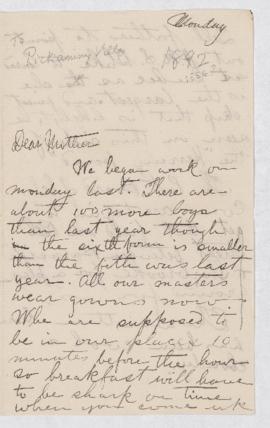 Monday
1892
Dear Mother
We began work on
monday last. There are
about 100 more boys
than last year though
the sixth form is smaller
than the fifth was last
year. All our masters
wear gowns now.
Whe are supposed to
be in our places 10
minutes before the hour
so breakfast will have
to be shark on time
when you come up